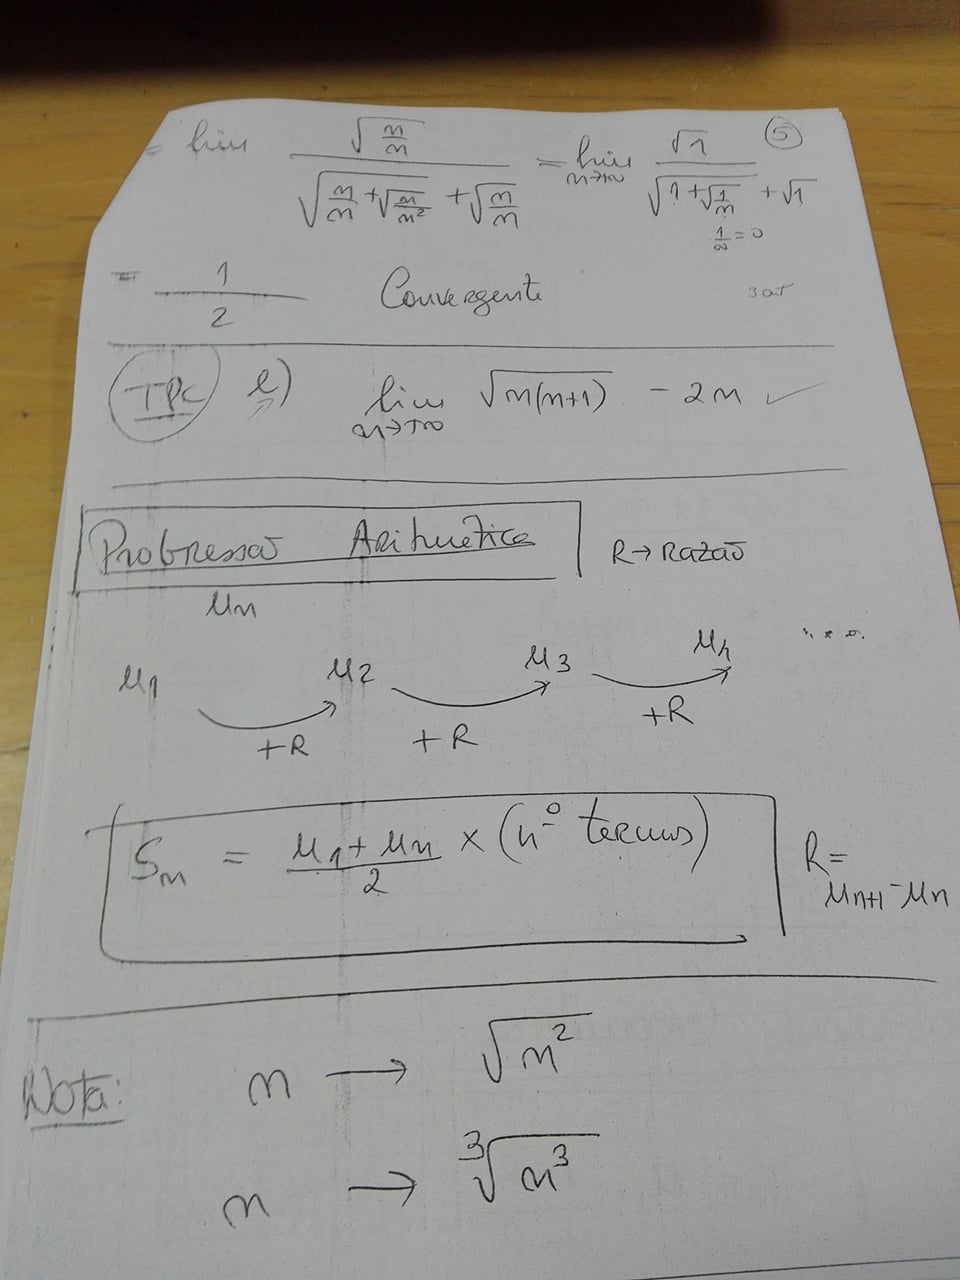 = lim √(n/n) / (√(n/n + √(n/n²)) + √(n/n)) = lim n→+∞ √1 / (√(1 + √(1/n)) + √1) (5)
1/∞ = 0
= 1/2 Convergente
TPC e) lim n→+∞ √(n(n+1)) - 2n ✓
Progressão Aritmética R → Razão
un
u1 u2 u3 u4 ....
+R +R +R
Sn = (u1 + un)/2 × (nº termos) R = un+1 - un
Nota: n → √(n²)
n → ³√(n³)